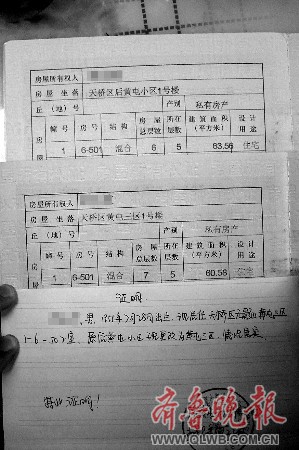 房屋所有权人
房 屋 坐 落 天桥区后黄屯小区1号楼
丘（地）号 产别 私有房产
幢 号 房 号 结 构 房 屋 总层数 所在 层数 建 筑 面 积 (平方米) 设 计 用 途
1 6-501 混合 6 5 63.56 住宅
房屋所有权人
房 屋 坐 落 天桥区黄屯三区1号楼
丘（地）号 产别 私有房产
幢 号 房号 结构 房 屋 总层数 所在 层数 建 筑 面 积 (平方米) 设 计 用 途
1 6-501 混合 7 5 60.58 住宅
证明
男, 出生, 现居住 天桥区 黄屯三区
1-6-
特此证明！
齐鲁晚报
WWW.QLWB.COM.CN